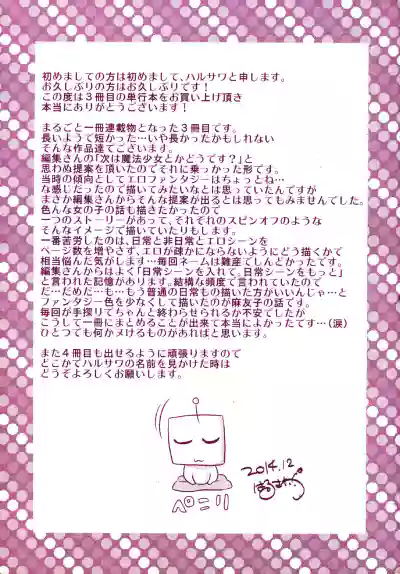 初めましての方は初めまして、ハルサワと申します。
お久しぶりの方はお久しぶりです！
この度は３冊目の単行本をお買い上げ頂き
本当にありがとうございます！
まるごと一冊連載物となった３冊目です。
長いようで短かった…いや長かったかもしれない
そんな作品達でございます。
編集さんの「次は魔法少女とかどうです？」と
思わぬ提案を頂いたのでそれに乗っかった形です。
当時の傾向としてエロファンタジーはちょっとね…
な感じだったので描いてみたいなとは思っていたんですが
まさか編集さんからそんな提案が出るとは思ってもみませんでした。
色んな女の子の話も描きたかったので
一つのストーリーがあって、それぞれのスピンオフのような
そんなイメージで描いていたりもします。
一番苦労したのは、日常と非日常とエロシーンを
ページ数を増やさず、エロが疎かにならないようにどう描くかで
相当悩んだ気がします…毎回ネームは難産でしんどかったです。
編集さんからはよく「日常シーンを入れて。日常シーンをもっと」
と言われた記憶があります。結構な頻度で言われていたので
だ…だめだ…も…もう普通の日常もの描いた方がいいんじゃ…と
ファンタジー色を少なくして描いたのが麻友子の話です。
毎回が手探りでちゃんと終わらせられるか不安でしたが
こうして一冊にまとめることが出来て本当によかったです…（涙）
ひとつでも何かヌけるものがあればと思います。
また４冊目も出せるように頑張りますので
どこかでハルサワの名前を見かけた時は
どうぞよろしくお願いします。
ペニリ
2014.12
はるさわ